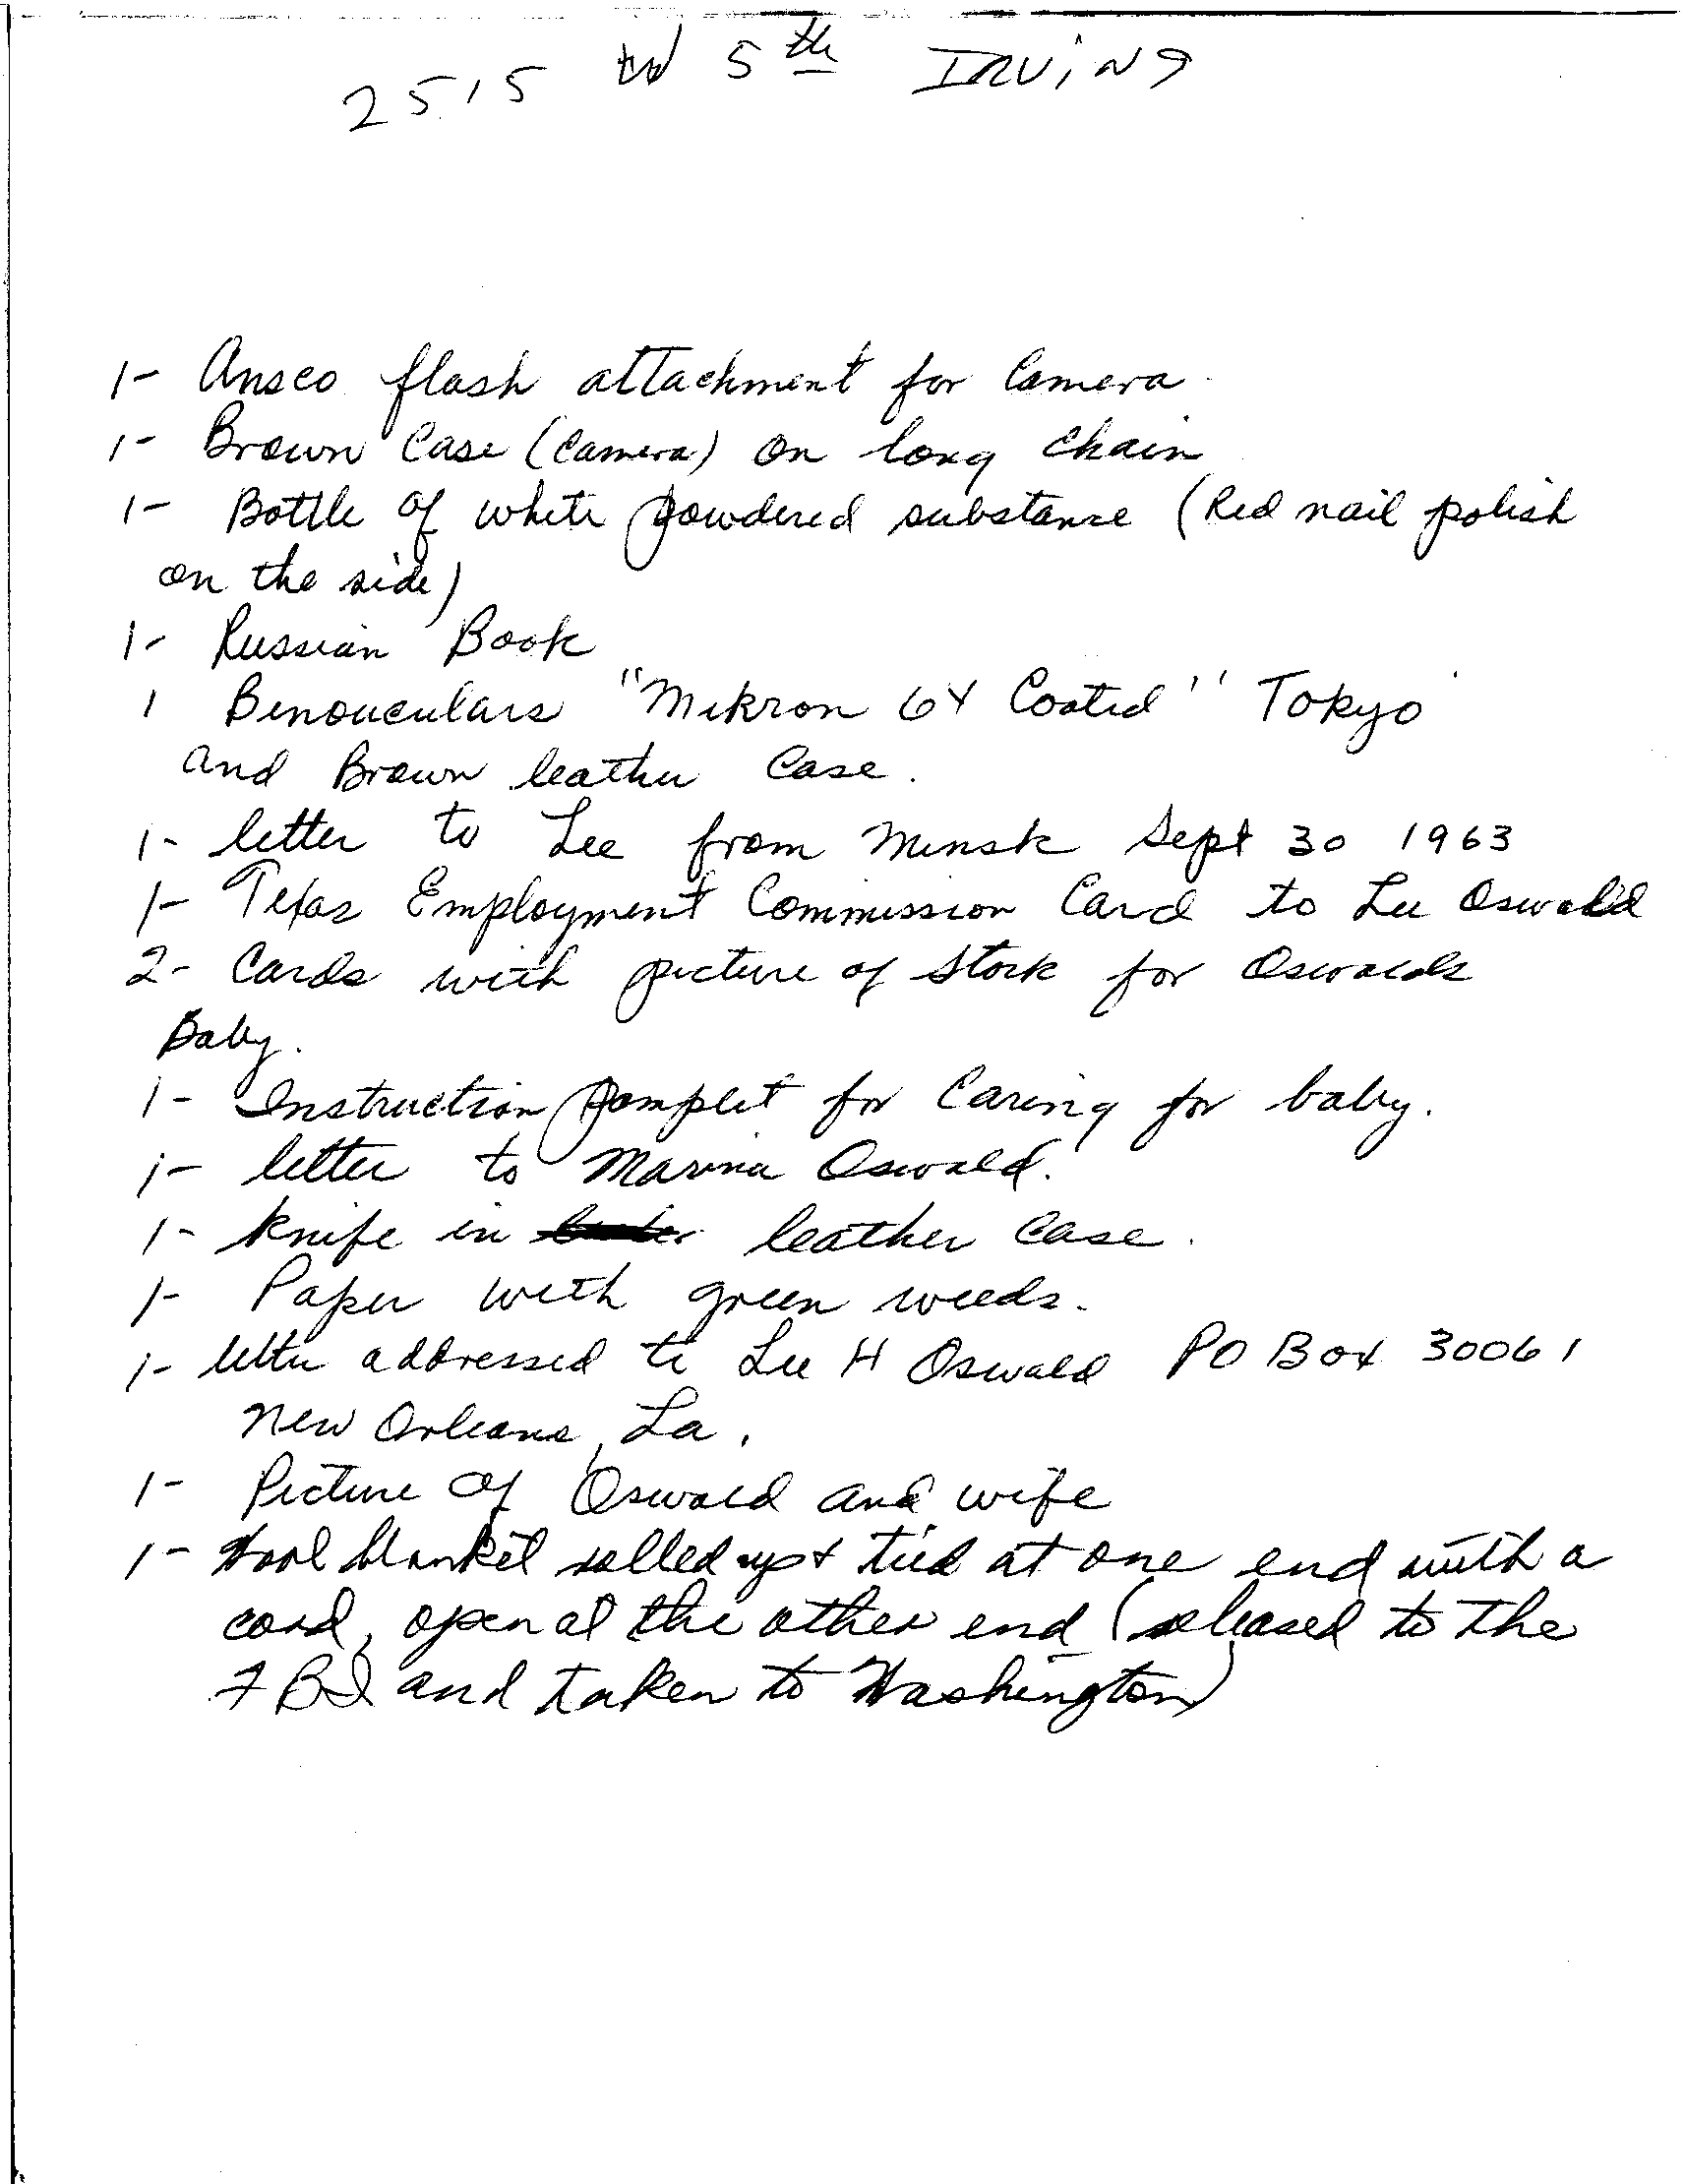 2515 W 5th IRVING
1- Ansco flash attachment for Camera.
1- Brown Case (Camera) on long chain
1- Bottle of white powdered substance (Red nail polish
on the side)
1- Russian Book
1 Binouculars "Mikron 6X Coated" Tokyo
and Brown leather Case.
1- letter to Lee from Minsk Sept 30 1963
1- Texas Employment Commission Card to Lee Oswald
2- Cards with picture of Stork for Oswalds
Baby.
1- Instruction pamplet for Caring for baby.
1- letter to Marina Oswald.
1- knife in leather Case.
1- Paper with green weeds.
1- letter addressed to Lee H Oswald PO Box 30061
New Orleans, La.
1- Picture of Oswald and wife
1- Wool blanket rolled up & tied at one end with a
cord, open at the other end (released to the
FBI and taken to Washington)